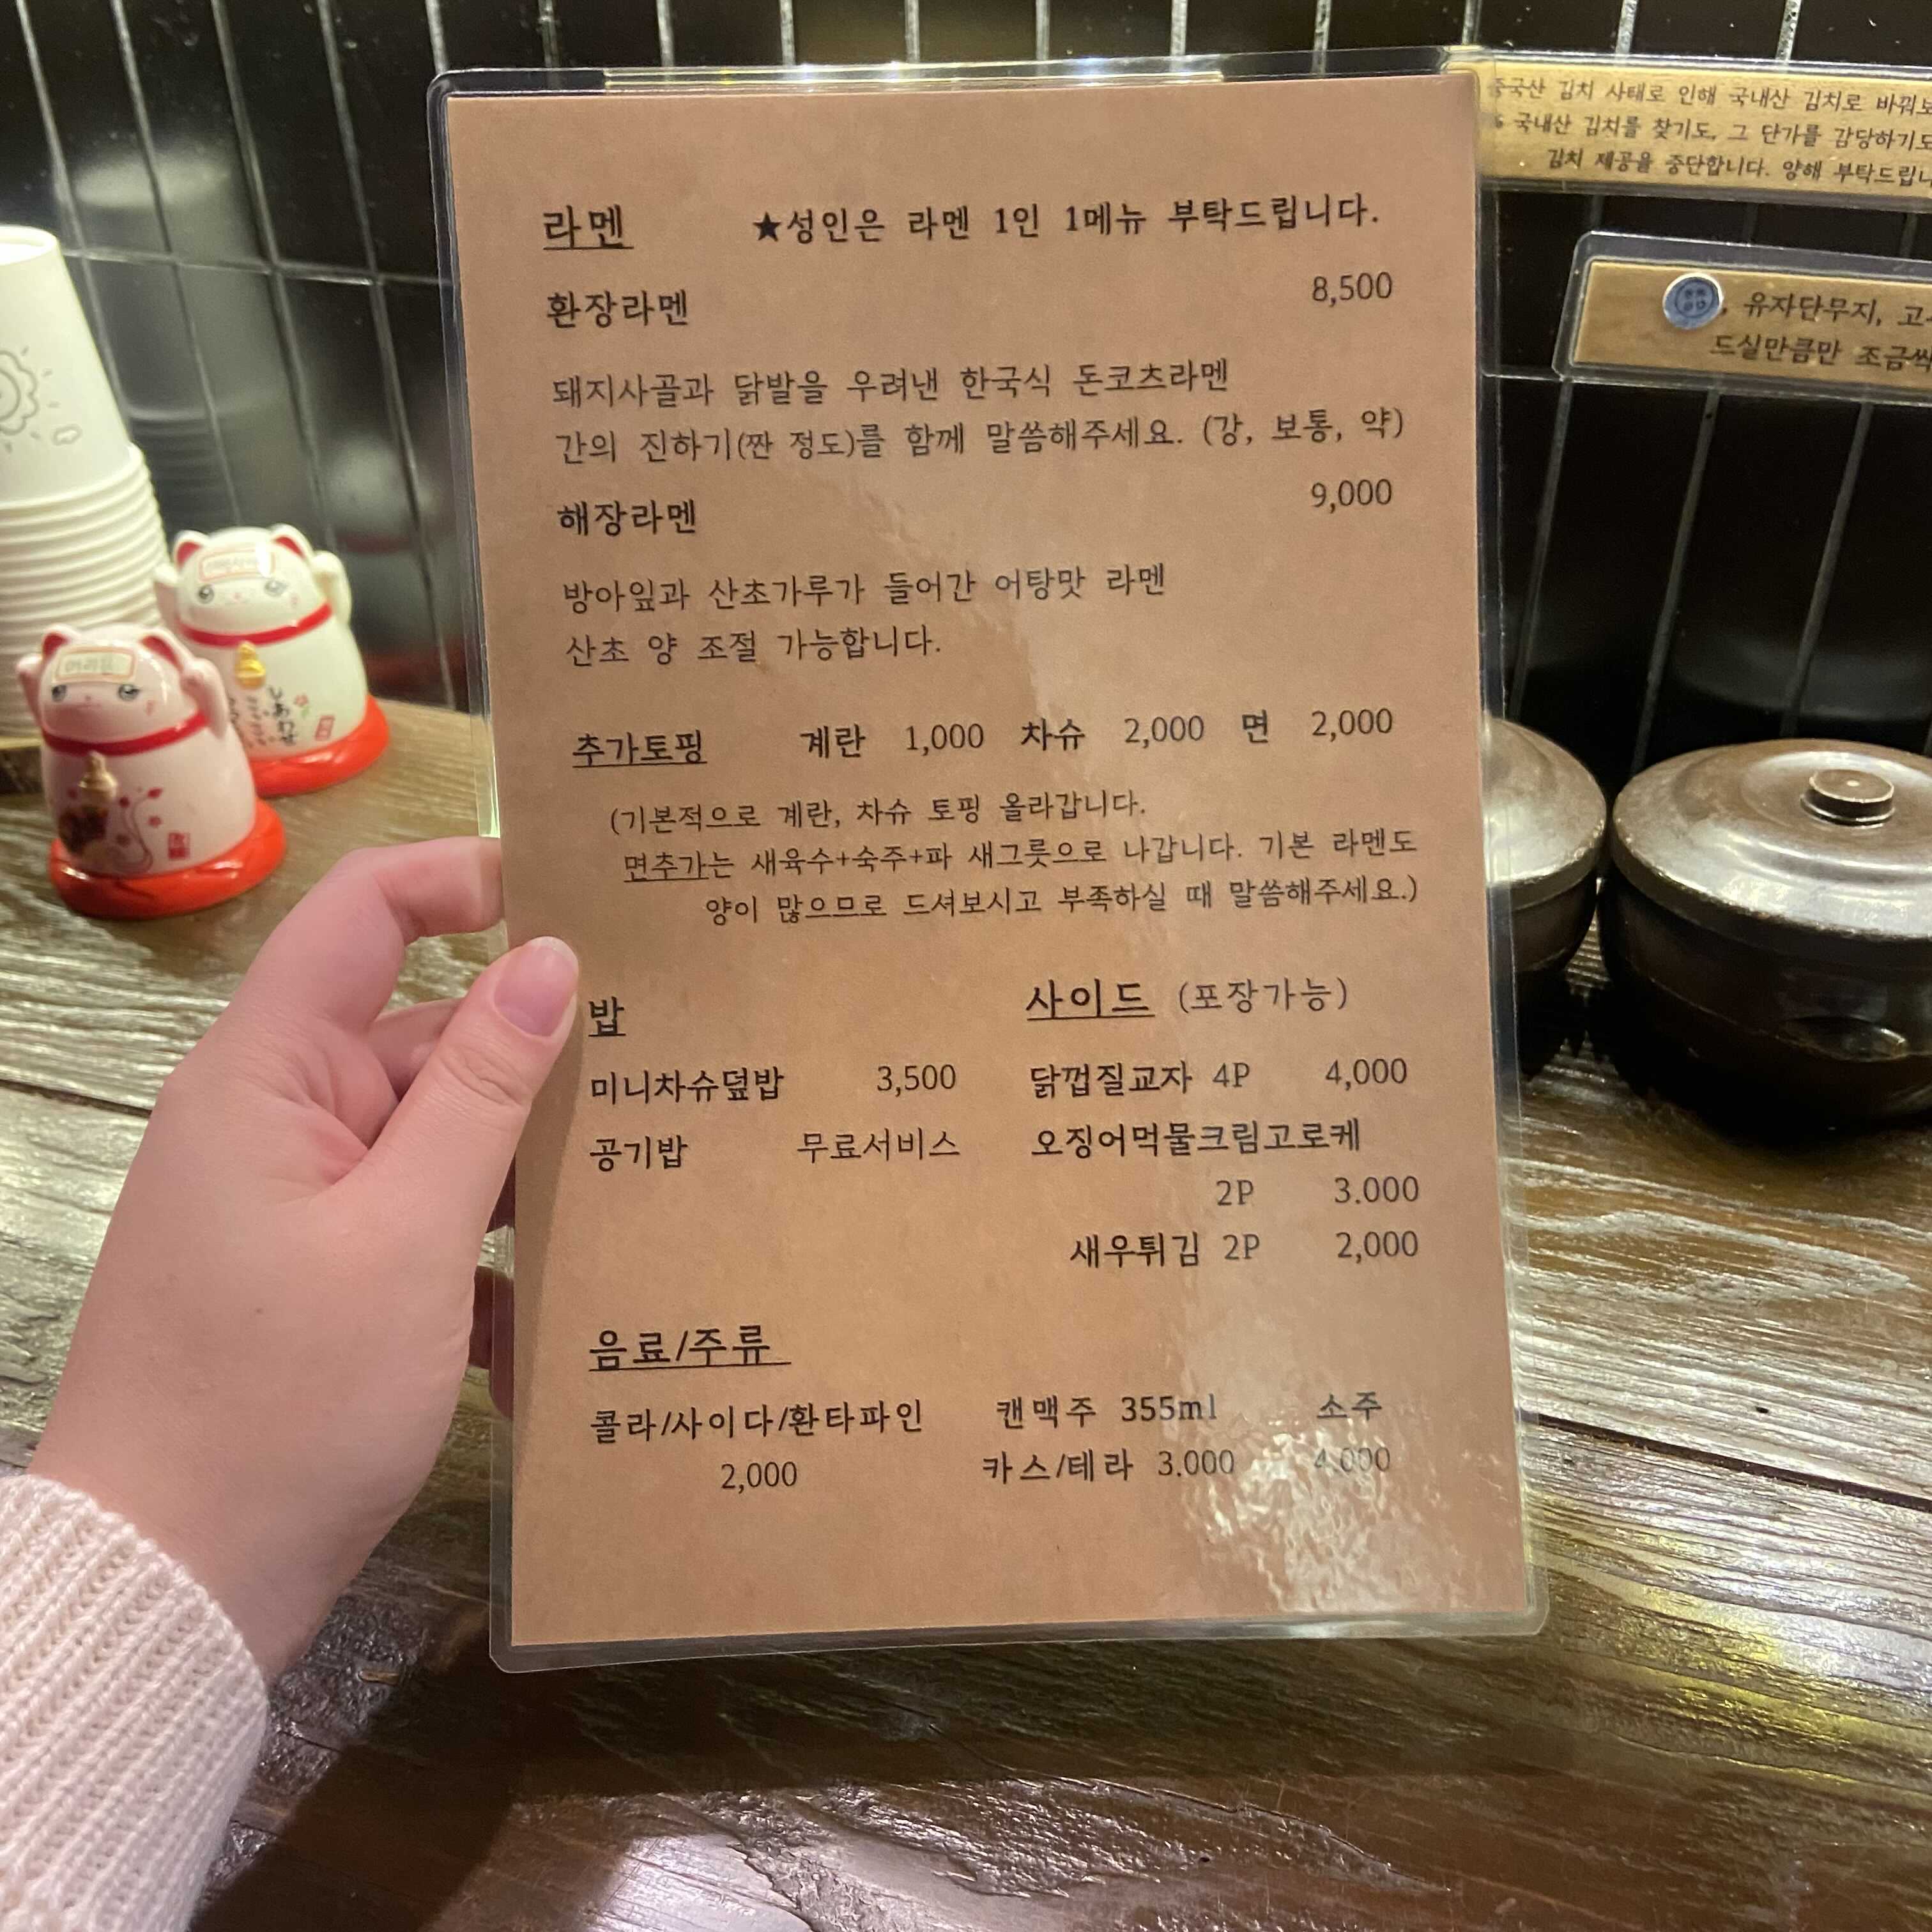 라멘 ★성인은 라멘 1인 1메뉴 부탁드립니다.
환장라멘 8,500
돼지사골과 닭발을 우려낸 한국식 돈코츠라멘
간의 진하기(짠 정도)를 함께 말씀해주세요. (강, 보통, 약)
해장라멘 9,000
방아잎과 산초가루가 들어간 어탕맛 라멘
산초 양 조절 가능합니다.
추가토핑 계란 1,000 차슈 2,000 면 2,000
(기본적으로 계란, 차슈 토핑 올라갑니다.
면추가는 새육수+숙주+파 새그릇으로 나갑니다. 기본 라멘도
양이 많으므로 드셔보시고 부족하실 때 말씀해주세요.)
밥
미니차슈덮밥 3,500
공기밥 무료서비스
사이드 (포장가능)
닭껍질교자 4P 4,000
오징어먹물크림고로케
2P 3.000
새우튀김 2P 2,000
음료/주류
콜라/사이다/환타파인
2,000
캔맥주 355ml
카스/테라 3.000
소주
4.000
중국산 김치 사태로 인해 국내산 김치로 바꿔보
국내산 김치를 찾기도, 그 단가를 감당하기도
김치 제공을 중단합니다. 양해 부탁드립니
, 유자단무지,
드실만큼만 조금씩